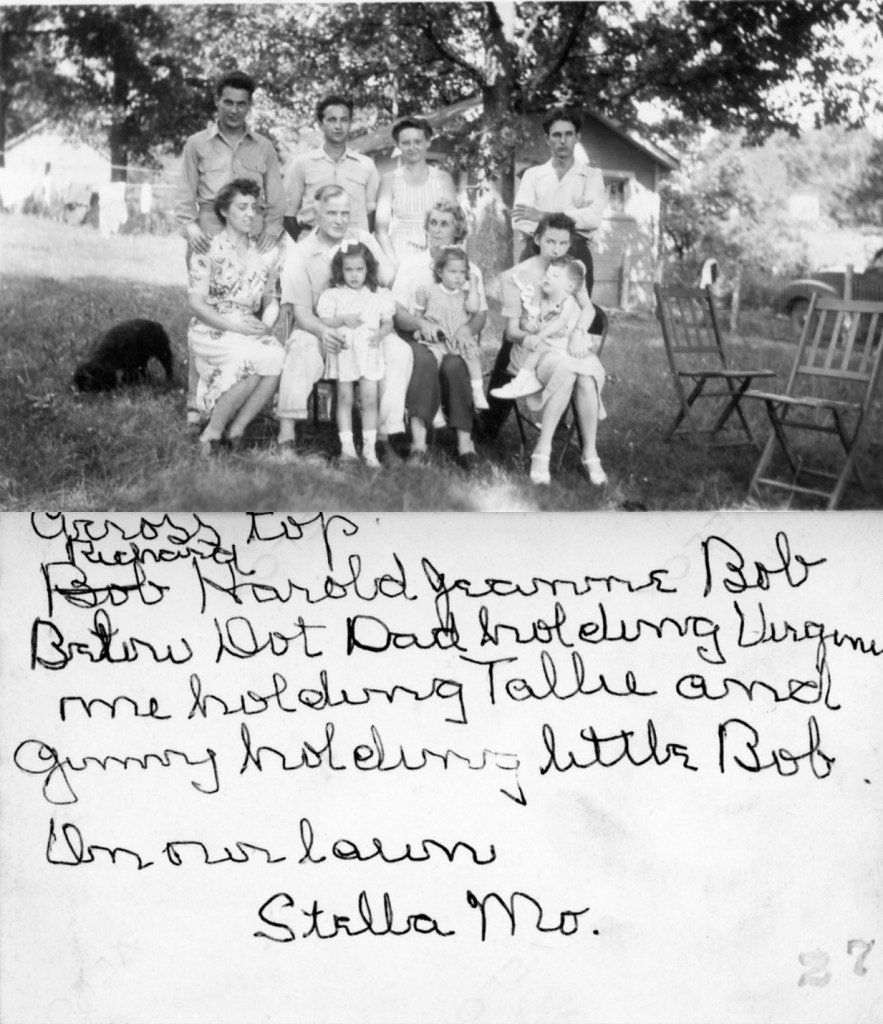 Across top.
Richard
Bob Harold Jeanne Bob
Below Dot Dad holding Virginia
me holding Tallie and
Ginny holding little Bob.
On our lawn
Stella Mo.
27